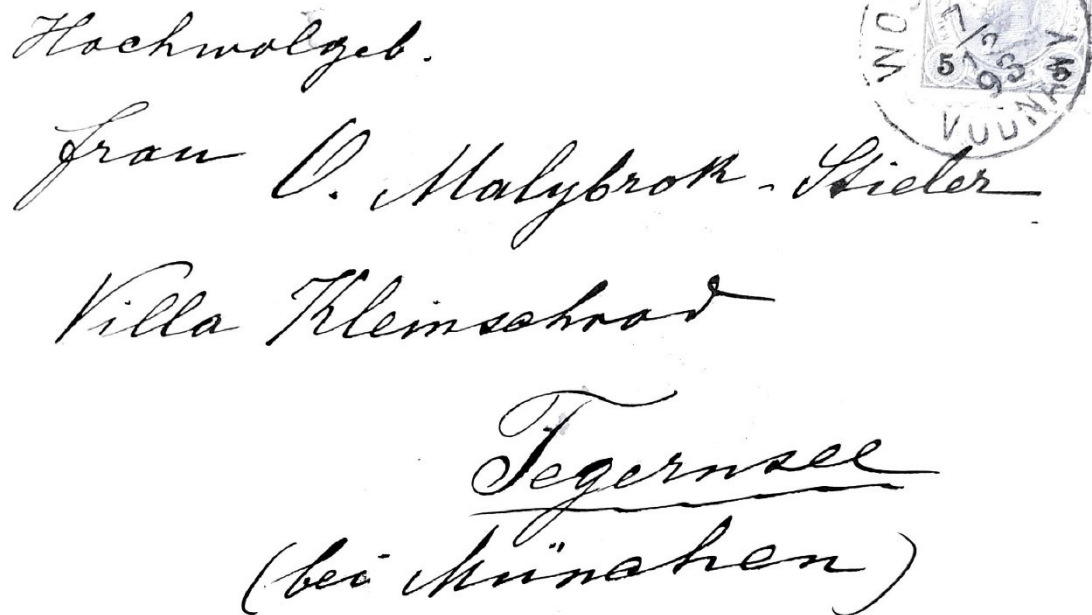 Hochwolgeb.
Frau O. Malybrok-Stieler
Villa Kleinschrod
Tegernsee
(bei München)
WO
7/12
93
5 5
VODNANY